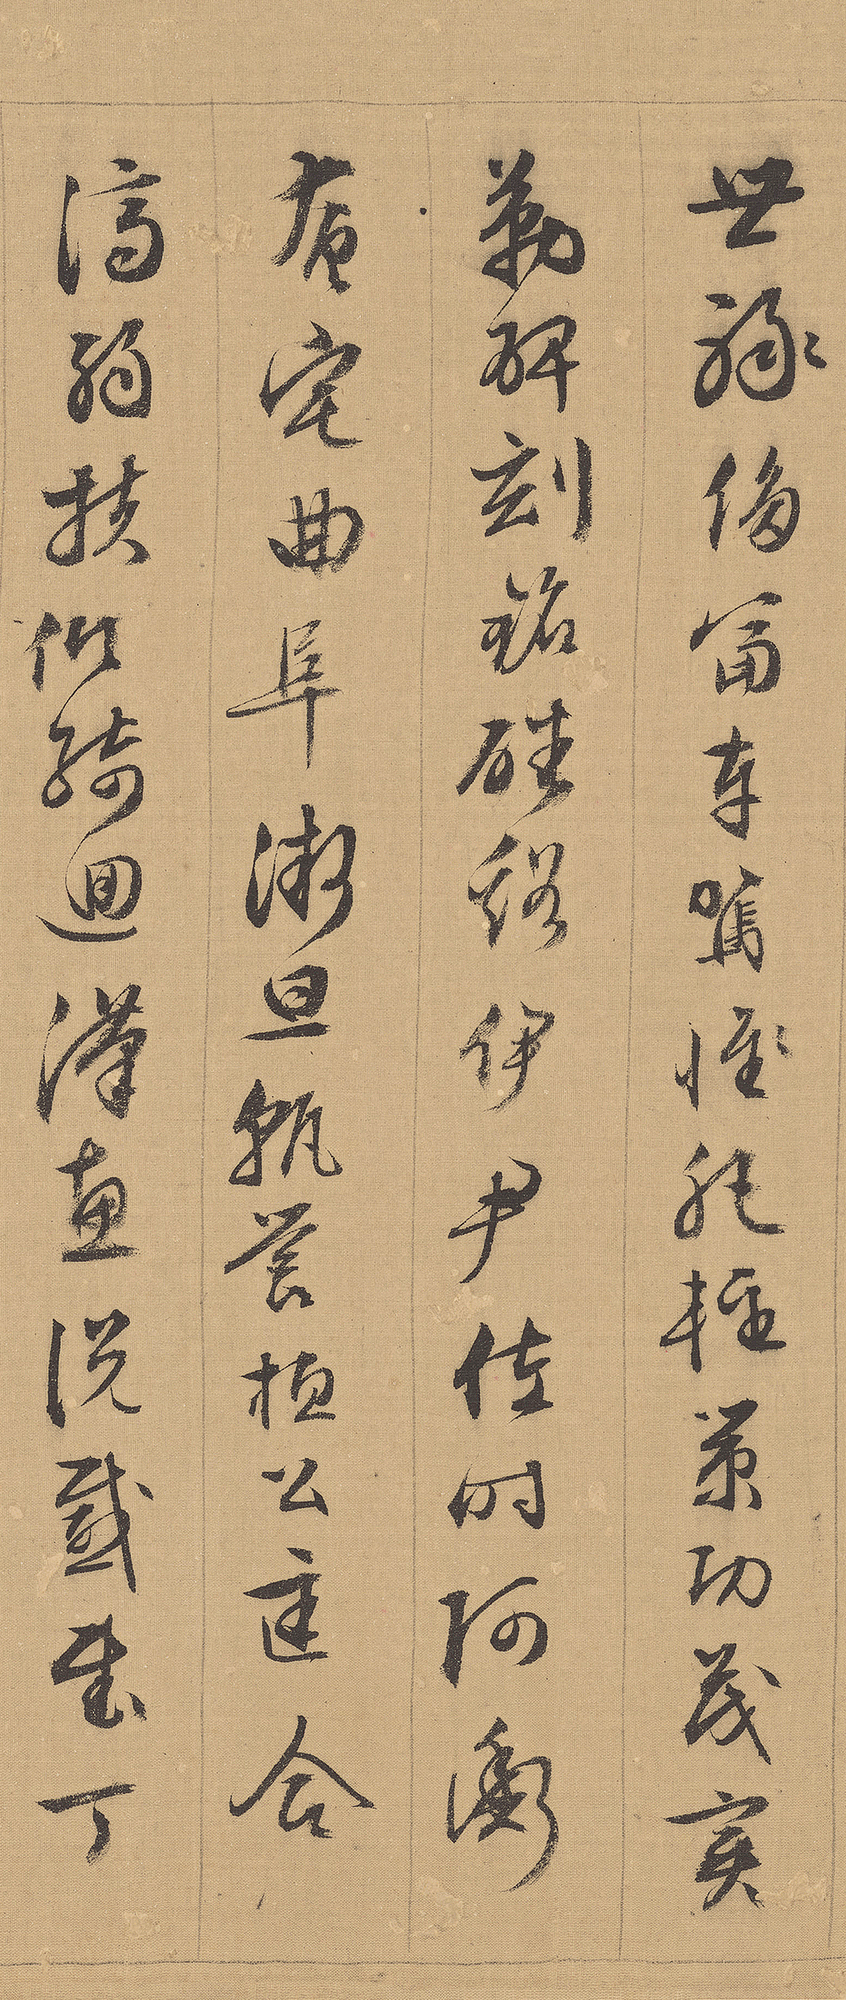 世祿侈富車駕惟肥輕策功茂實
勒碑刻銘磻谿伊尹佐時阿衡
奄宅曲阜微旦孰營桓公匡合
濟弱扶傾綺迴漢惠說感武丁